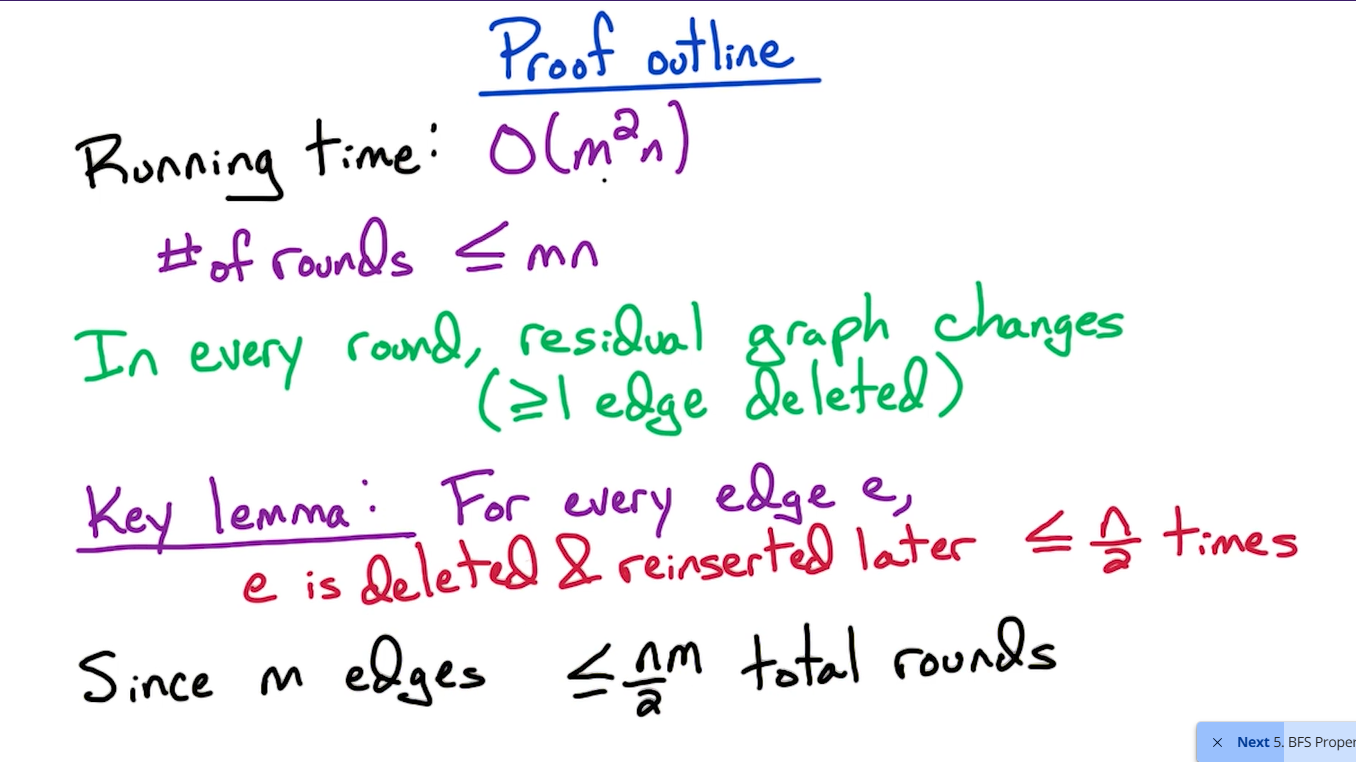 Proof outline
Running time: O(m²n)
# of rounds ≤ mn
In every round, residual graph changes
(≥1 edge deleted)
Key lemma: For every edge e,
e is deleted & reinserted later ≤ n/2 times
Since m edges ≤ nm/2 total rounds
× Next 5. BFS Proper